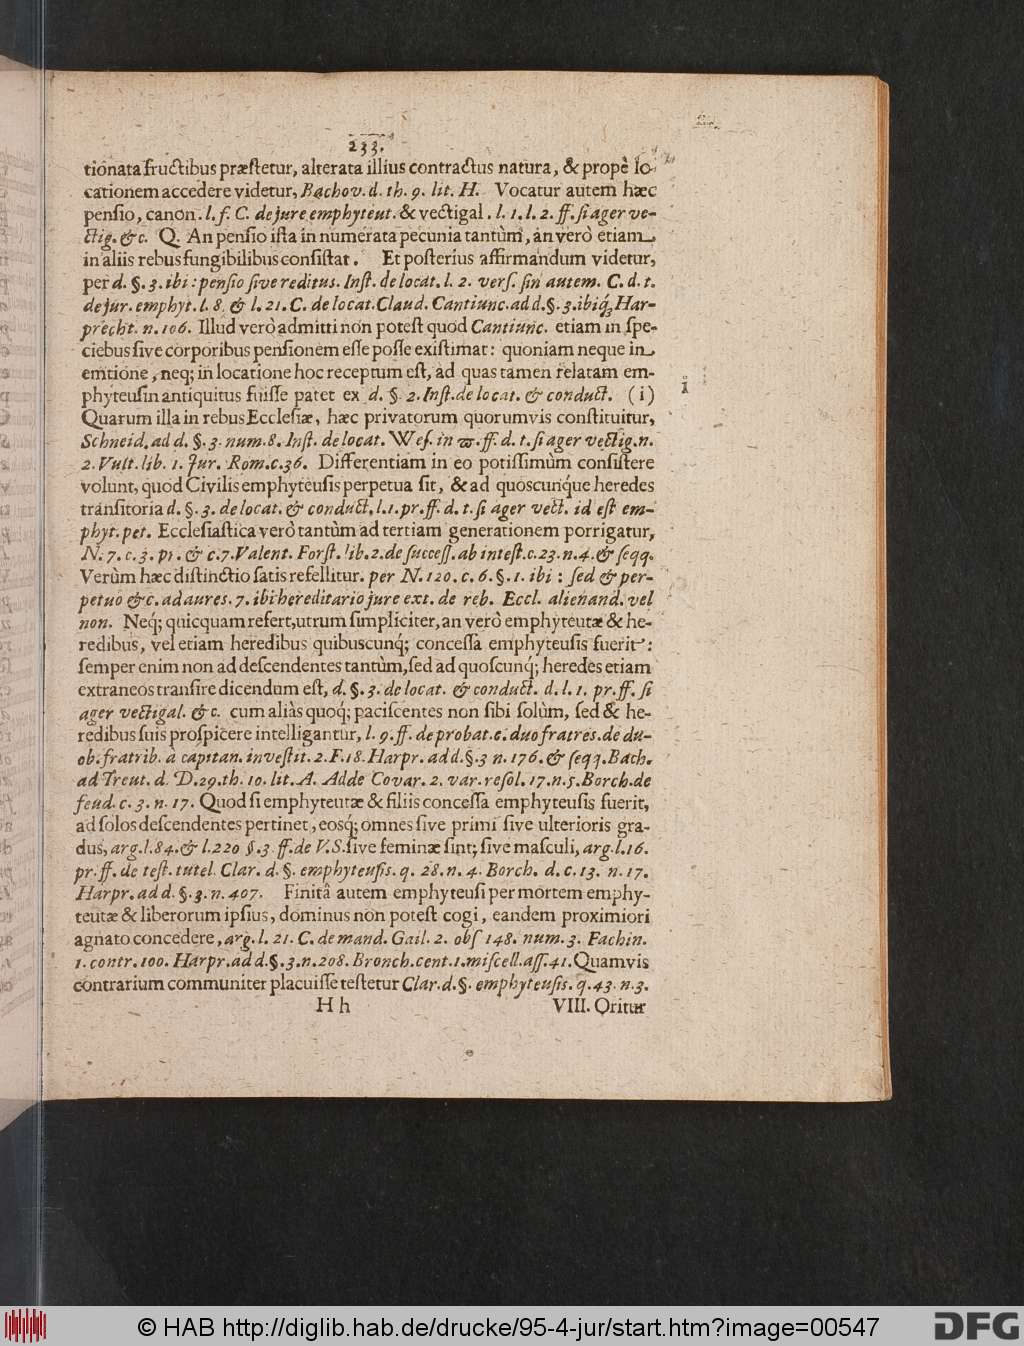 233.
tionata fructibus præstetur, alterata illius contractus natura, & propè lo-
cationem accedere videtur, Bachov. d. th. 9. lit. H. Vocatur autem hæc
pensio, canon. l. f. C. de jure emphyteut. & vectigal. l. 1. l. 2. ff. si ager ve-
ctig. &c. Q. An pensio ista in numerata pecunia tantùm, an verò etiam
in aliis rebus fungibilibus consistat. Et posterius affirmandum videtur,
per d. §. 3. ibi: pensio sive reditus. Inst. de locat. l. 2. vers. sin autem. C. d. t.
de jur. emphyt. l. 8. & l. 21. C. de locat. Claud. Cantiunc. ad d. §. 3. ibiq; Har-
precht. n. 106. Illud verò admitti non potest quod Cantiunc. etiam in spe-
ciebus sive corporibus pensionem esse posse existimat: quoniam neque in
emtione, neq; in locatione hoc receptum est, ad quas tamen relatam em-
phyteusin antiquitus fuisse patet ex d. §. 2. Inst. de locat. & conduct. (i)
i
Quarum illa in rebus Ecclesiæ, hæc privatorum quorumvis constituitur,
Schneid. ad d. §. 3. num. 8. Inst. de locat. Wes. in ϖ. ff. d. t. si ager vectig. n.
2. Vult. lib. 1. Jur. Rom. c. 36. Differentiam in eo potissimùm consistere
volunt, quod Civilis emphyteusis perpetua sit, & ad quoscunque heredes
transitoria d. §. 3. de locat. & conduct. l. 1. pr. ff. d. t. si ager vect. id est em-
phyt. pet. Ecclesiastica verò tantùm ad tertiam generationem porrigatur,
N. 7. c. 3. pr. & c. 7. Valent. Forst. lib. 2. de success. ab intest. c. 23. n. 4. & seqq.
Verùm hæc distinctio satis refellitur. per N. 120. c. 6. §. 1. ibi: sed & per-
petuo &c. ad aures. 7. ibi hereditario jure ext. de reb. Eccl. alienand. vel
non. Neq; quicquam refert, utrum simpliciter, an verò emphyteutæ & he-
redibus, vel etiam heredibus quibuscunq; concessa emphyteusis fuerit:
semper enim non ad descendentes tantùm, sed ad quoscunq; heredes etiam
extraneos transire dicendum est, d. §. 3. de locat. & conduct. d. l. 1. pr. ff. si
ager vectigal. &c. cum aliàs quoq; paciscentes non sibi solùm, sed & he-
redibus suis prospicere intelligantur, l. 9. ff. de probat. c. duo fratres. de du-
ob. fratrib. à capitan. investit. 2. F. 18. Harpr. ad d. §. 3 n. 176. & seqq. Bach.
ad Treut. d. D. 29. th. 10. lit. A. Adde Covar. 2. var. resol. 17. n. 5. Borch. de
feud. c. 3. n. 17. Quod si emphyteutæ & filiis concessa emphyteusis fuerit,
ad solos descendentes pertinet, eosq; omnes sive primi sive ulterioris gra-
dus, arg. l. 84. & l. 220 §. 3 ff. de V. S. sive feminæ sint; sive masculi, arg. l. 16.
pr. ff. de test. tutel. Clar. d. §. emphyteusis. q. 28. n. 4. Borch. d. c. 13. n. 17.
Harpr. ad d. §. 3. n. 407. Finitâ autem emphyteusi per mortem emphy-
teutæ & liberorum ipsius, dominus non potest cogi, eandem proximiori
agnato concedere, arg. l. 21. C. de mand. Gail. 2. obs 148. num. 3. Fachin.
1. contr. 100. Harpr. ad d. §. 3. n. 208. Bronch. cent. 1. miscell. ass. 41. Quamvis
contrarium communiter placuisse testetur Clar. d. §. emphyteusis. q. 43. n. 3.
H h VIII. Oritur
© HAB http://diglib.hab.de/drucke/95-4-jur/start.htm?image=00547
DFG